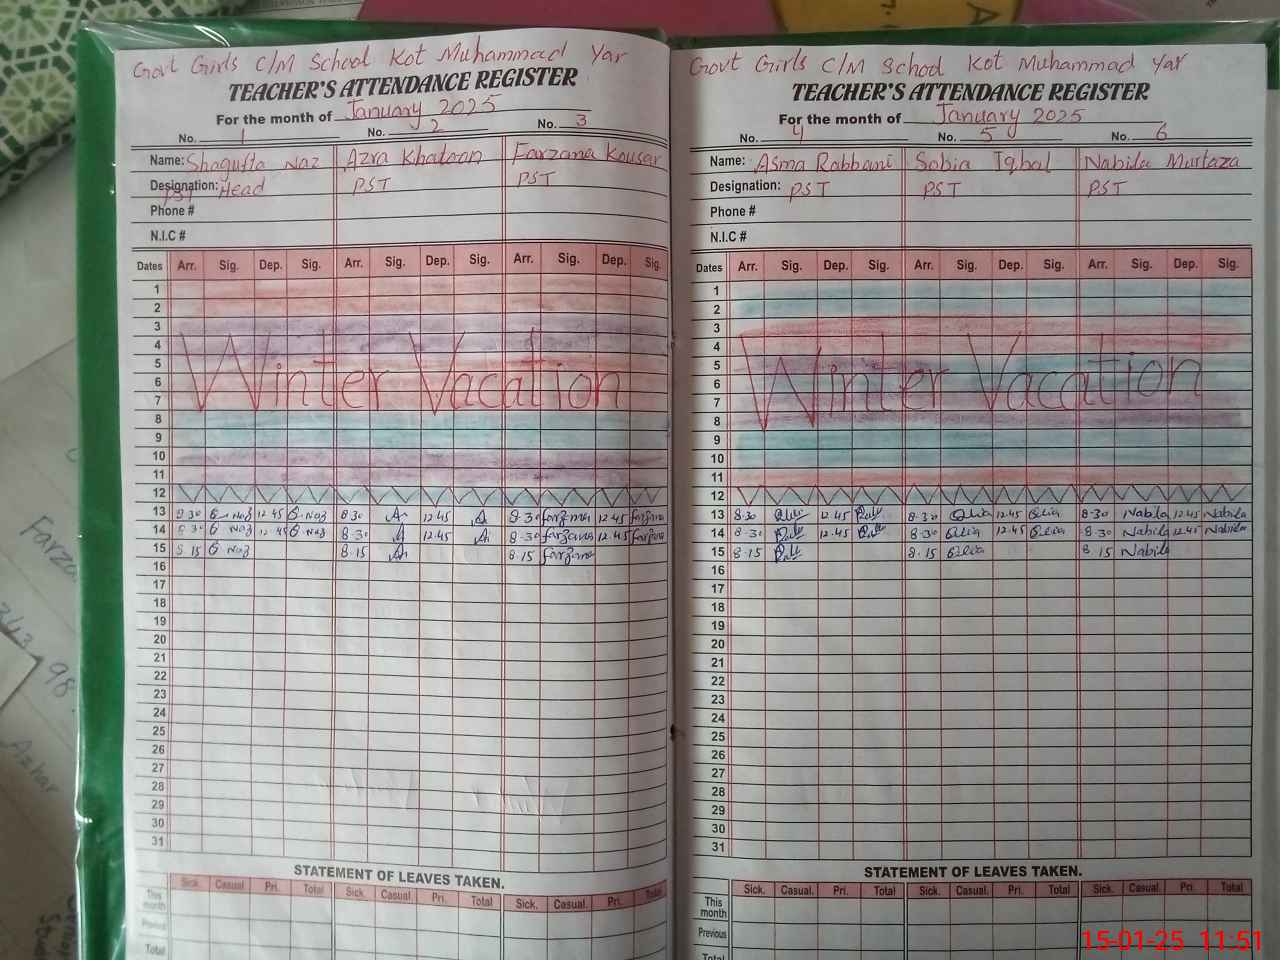 Govt Girls C/M School Kot Muhammad Yar
TEACHER'S ATTENDANCE REGISTER
For the month of January 2025
No. 1 No. 2 No. 3
Name: Shagufta Naz Azra Khatoon Farzana Kousar
Designation: PST Head PST PST
Phone #
N.I.C #
Dates Arr. Sig. Dep. Sig. Arr. Sig. Dep. Sig. Arr. Sig. Dep. Sig.
1
2
3
4
5
6
7
Winter Vacation
8
9
10
11
12
13 8.30 Naz 12.45 Naz 8.30 12.45 8.30 farzana 12.45 farzana
14 8.30 Naz 12.45 Naz 8.30 12.45 8.30 farzana 12.45 farzana
15 8.15 Naz 8.15 8.15 farzana
16
17
18
19
20
21
22
23
24
25
26
27
28
29
30
31
STATEMENT OF LEAVES TAKEN.
Sick. Casual Pri. Total Sick. Casual. Pri. Total Sick. Casual. Pri. Total
This month
Previous
Total
Govt Girls C/M School Kot Muhammad Yar
TEACHER'S ATTENDANCE REGISTER
For the month of January 2025
No. 4 No. 5 No. 6
Name: Asma Rabbani Sobia Iqbal Nabila Murtaza
Designation: PST PST PST
Phone #
N.I.C #
Dates Arr. Sig. Dep. Sig. Arr. Sig. Dep. Sig. Arr. Sig. Dep. Sig.
1
2
3
4
5
6
7
Winter Vacation
8
9
10
11
12
13 8.30 12.45 8.30 12.45 8.30 Nabila 12.45 Nabila
14 8.30 12.45 8.30 12.45 8.30 Nabila 12.45 Nabila
15 8.15 8.15 8.15 Nabila
16
17
18
19
20
21
22
23
24
25
26
27
28
29
30
31
STATEMENT OF LEAVES TAKEN.
Sick. Casual. Pri. Total Sick. Casual. Pri. Total Sick. Casual. Pri. Total
This month
Previous
Total
15-01-25 11:51